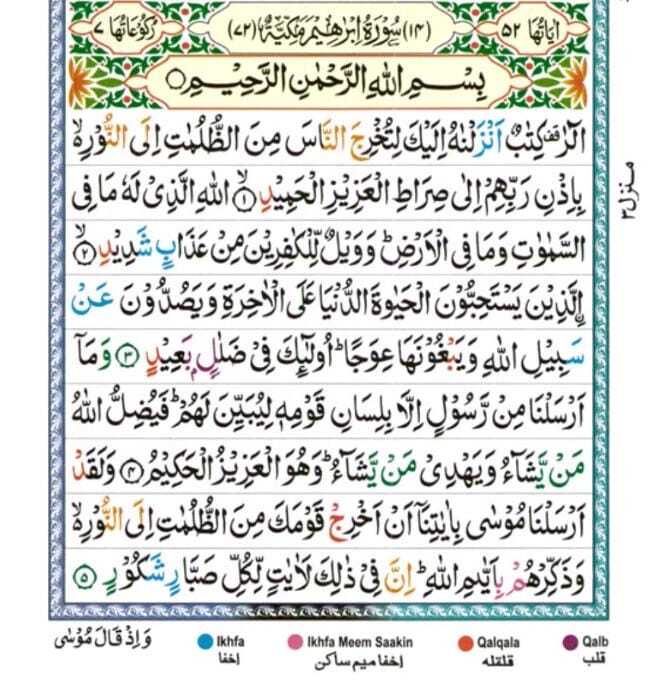 اٰيَاتُهَا ٥٢ (١٤) سُوْرَةُ اِبْرٰهِيْمَ مَكِّيَّةٌ (٧٢) رُكُوْعَاتُهَا ٧
بِسْمِ اللّٰهِ الرَّحْمٰنِ الرَّحِيْمِ
الٓرٰ كِتٰبٌ اَنْزَلْنٰهُ اِلَيْكَ لِتُخْرِجَ النَّاسَ مِنَ الظُّلُمٰتِ اِلَى النُّوْرِ۬ۙ
بِاِذْنِ رَبِّهِمْ اِلٰى صِرَاطِ الْعَزِيْزِ الْحَمِيْدِۙ ١ اللّٰهِ الَّذِيْ لَهٗ مَا فِى
السَّمٰوٰتِ وَمَا فِى الْاَرْضِؕ وَوَيْلٌ لِّلْكٰفِرِيْنَ مِنْ عَذَابٍ شَدِيْدِۙ ٢
اِ۟لَّذِيْنَ يَسْتَحِبُّوْنَ الْحَيٰوةَ الدُّنْيَا عَلَى الْاٰخِرَةِ وَيَصُدُّوْنَ عَنْ
سَبِيْلِ اللّٰهِ وَيَبْغُوْنَهَا عِوَجًاؕ اُولٰٓئِكَ فِيْ ضَلٰلٍۭ بَعِيْدٍ ٣ وَمَاۤ
اَرْسَلْنَا مِنْ رَّسُوْلٍ اِلَّا بِلِسَانِ قَوْمِهٖ لِيُبَيِّنَ لَهُمْؕ فَيُضِلُّ اللّٰهُ
مَنْ يَّشَآءُ وَيَهْدِيْ مَنْ يَّشَآءُؕ وَهُوَ الْعَزِيْزُ الْحَكِيْمُ ٤ وَلَقَدْ
اَرْسَلْنَا مُوْسٰى بِاٰيٰتِنَاۤ اَنْ اَخْرِجْ قَوْمَكَ مِنَ الظُّلُمٰتِ اِلَى النُّوْرِ۬ۙ
وَذَكِّرْهُمْ بِاَيّٰىمِ اللّٰهِؕ اِنَّ فِيْ ذٰلِكَ لَاٰيٰتٍ لِّكُلِّ صَبَّارٍ شَكُوْرٍ ٥
منزل ٣
وَاِذْ قَالَ مُوْسٰى
Ikhfa
اخفا
Ikhfa Meem Saakin
اخفا ميم ساكن
Qalqala
قلقله
Qalb
قلب